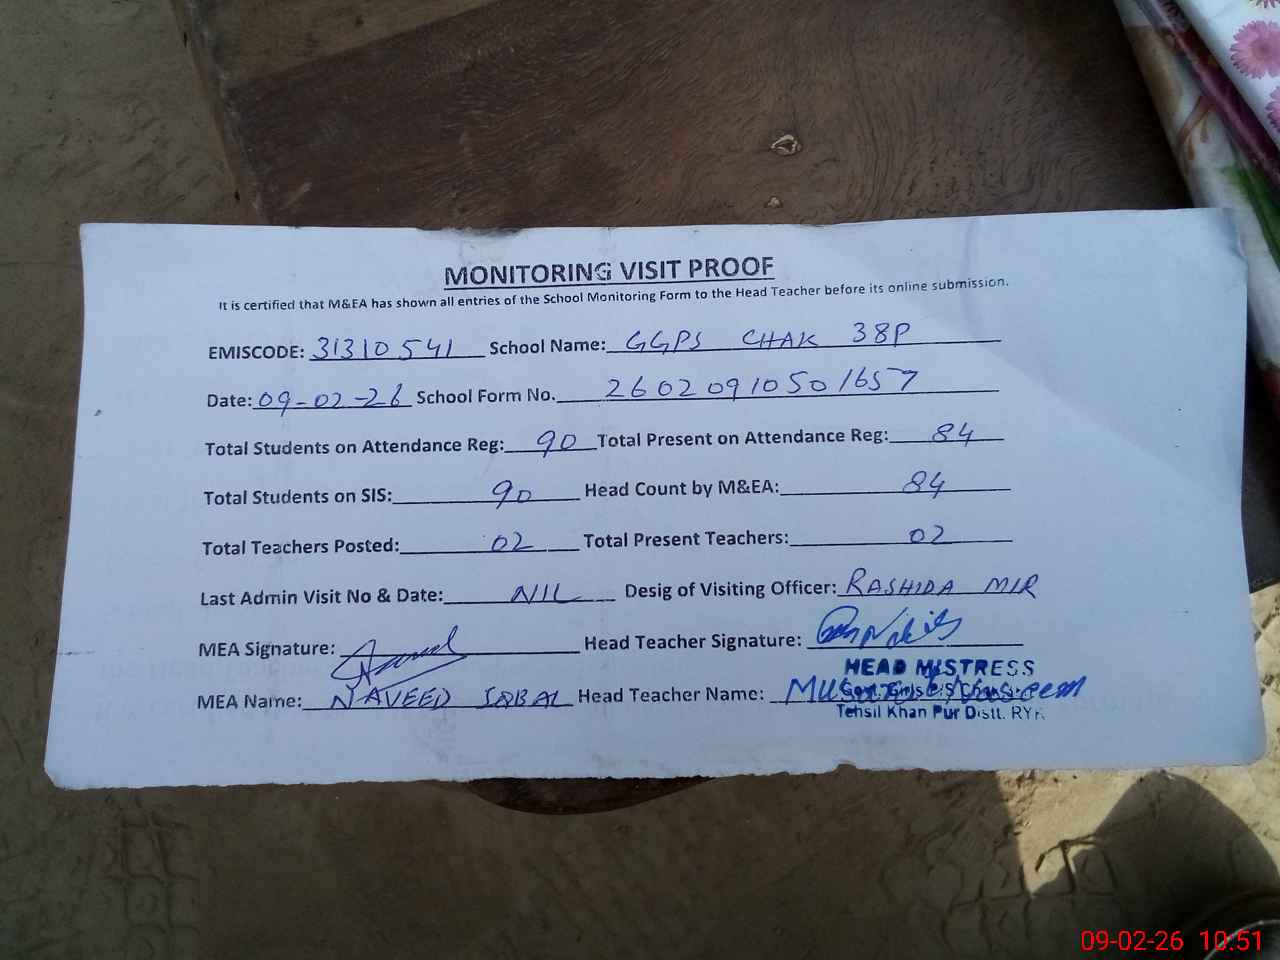 MONITORING VISIT PROOF
It is certified that M&EA has shown all entries of the School Monitoring Form to the Head Teacher before its online submission.
EMISCODE: 31310541 School Name: GGPS CHAK 38P
Date: 09-02-26 School Form No. 260209105016​57
Total Students on Attendance Reg: 90 Total Present on Attendance Reg: 84
Total Students on SIS: 90 Head Count by M&EA: 84
Total Teachers Posted: 02 Total Present Teachers: 02
Last Admin Visit No & Date: NIL Desig of Visiting Officer: RASHIDA MIR
MEA Signature: Head Teacher Signature:
HEAD MISTRESS
MEA Name: NAVEED IQBAL Head Teacher Name:
Govt. Girls P/S Chak
Tehsil Khan Pur Distt. RYK
09-02-26 10:51